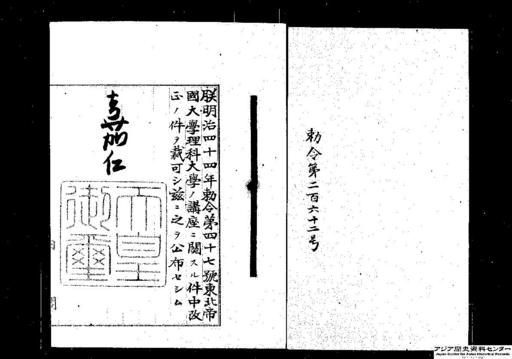 勅令第二百六十二号
朕明治四十四年勅令第四十七號東北帝
國大學理科大學ノ講座ニ關スル件中改
正ノ件ヲ裁可シ茲ニ之ヲ公布セシム
嘉仁
天皇
御璽
アジア歴史資料センター
Japan Center for Asian Historical Records